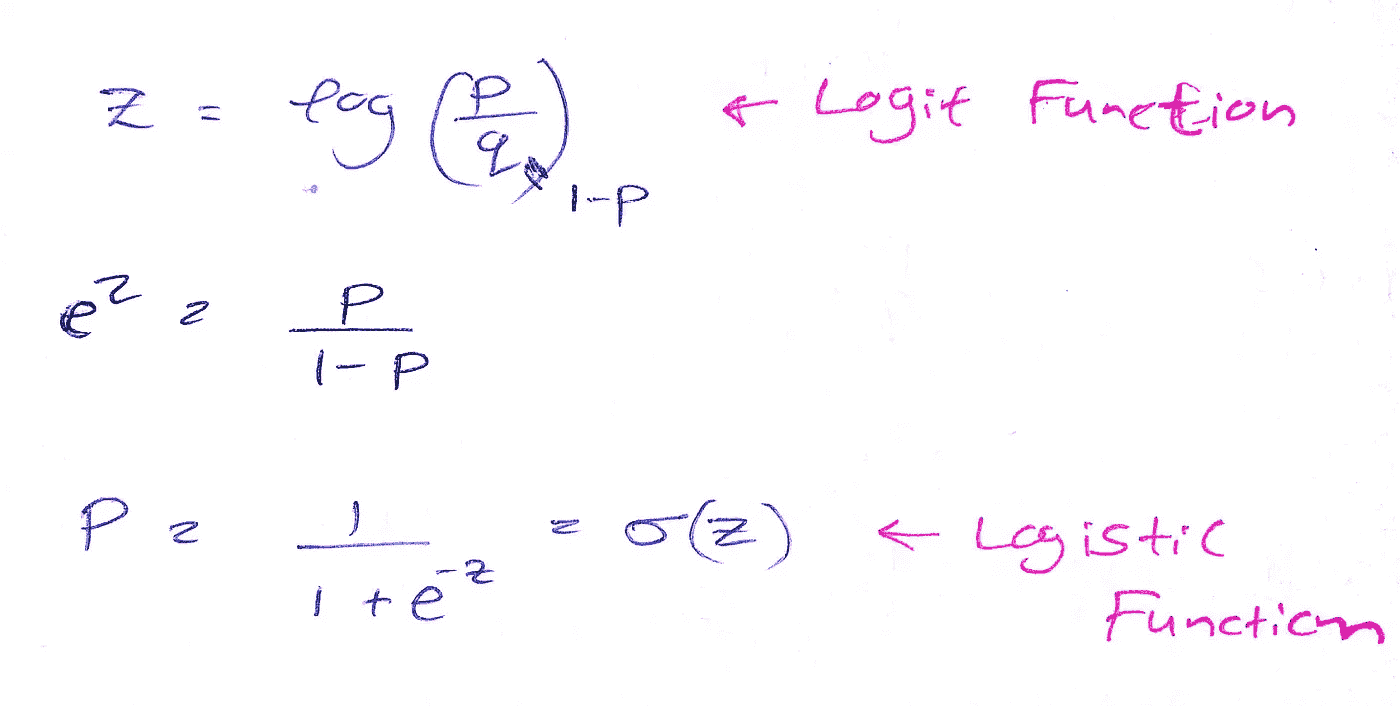 z = log (p/q) 1-p ← Logit Function
e^z = p/(1-p)
P = 1/(1+e^-z) = σ(z) ← Logistic
Function